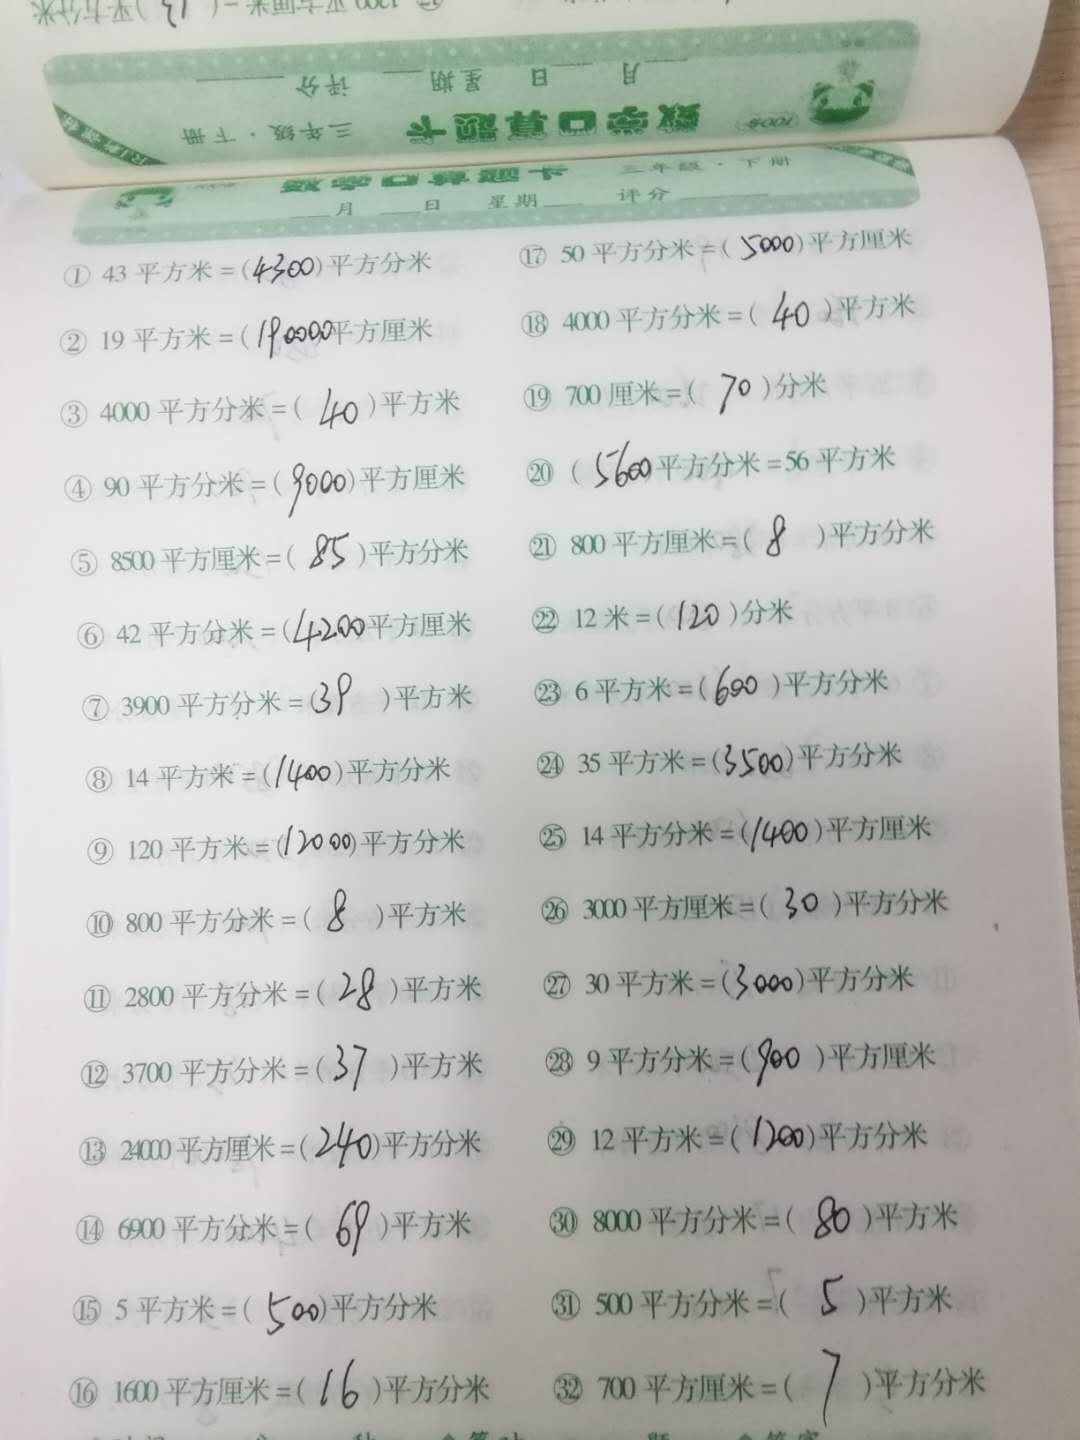 1300平方厘米=(13)平方分米
月 日 星期 评分
100分 数学口算题卡 三年级·下册
数学口算题卡 三年级·下册
月 日 星期 评分
① 43平方米=(4300)平方分米
② 19平方米=(190000平方厘米
③ 4000平方分米=(40)平方米
④ 90平方分米=(9000)平方厘米
⑤ 8500平方厘米=(85)平方分米
⑥ 42平方分米=(4200平方厘米
⑦ 3900平方分米=(39)平方米
⑧ 14平方米=(1400)平方分米
⑨ 120平方米=(12000)平方分米
⑩ 800平方分米=(8)平方米
⑪ 2800平方分米=(28)平方米
⑫ 3700平方分米=(37)平方米
⑬ 24000平方厘米=(240)平方分米
⑭ 6900平方分米=(69)平方米
⑮ 5平方米=(500)平方分米
⑯ 1600平方厘米=(16)平方分米
⑰ 50平方分米=(5000)平方厘米
⑱ 4000平方分米=(40)平方米
⑲ 700厘米=(70)分米
⑳ (5600平方分米=56平方米
㉑ 800平方厘米=(8)平方分米
㉒ 12米=(120)分米
㉓ 6平方米=(600)平方分米
㉔ 35平方米=(3500)平方分米
㉕ 14平方分米=(1400)平方厘米
㉖ 3000平方厘米=(30)平方分米
㉗ 30平方米=(3000)平方分米
㉘ 9平方分米=(900)平方厘米
㉙ 12平方米=(1200)平方分米
㉚ 8000平方分米=(80)平方米
㉛ 500平方分米=(5)平方米
㉜ 700平方厘米=(7)平方分米